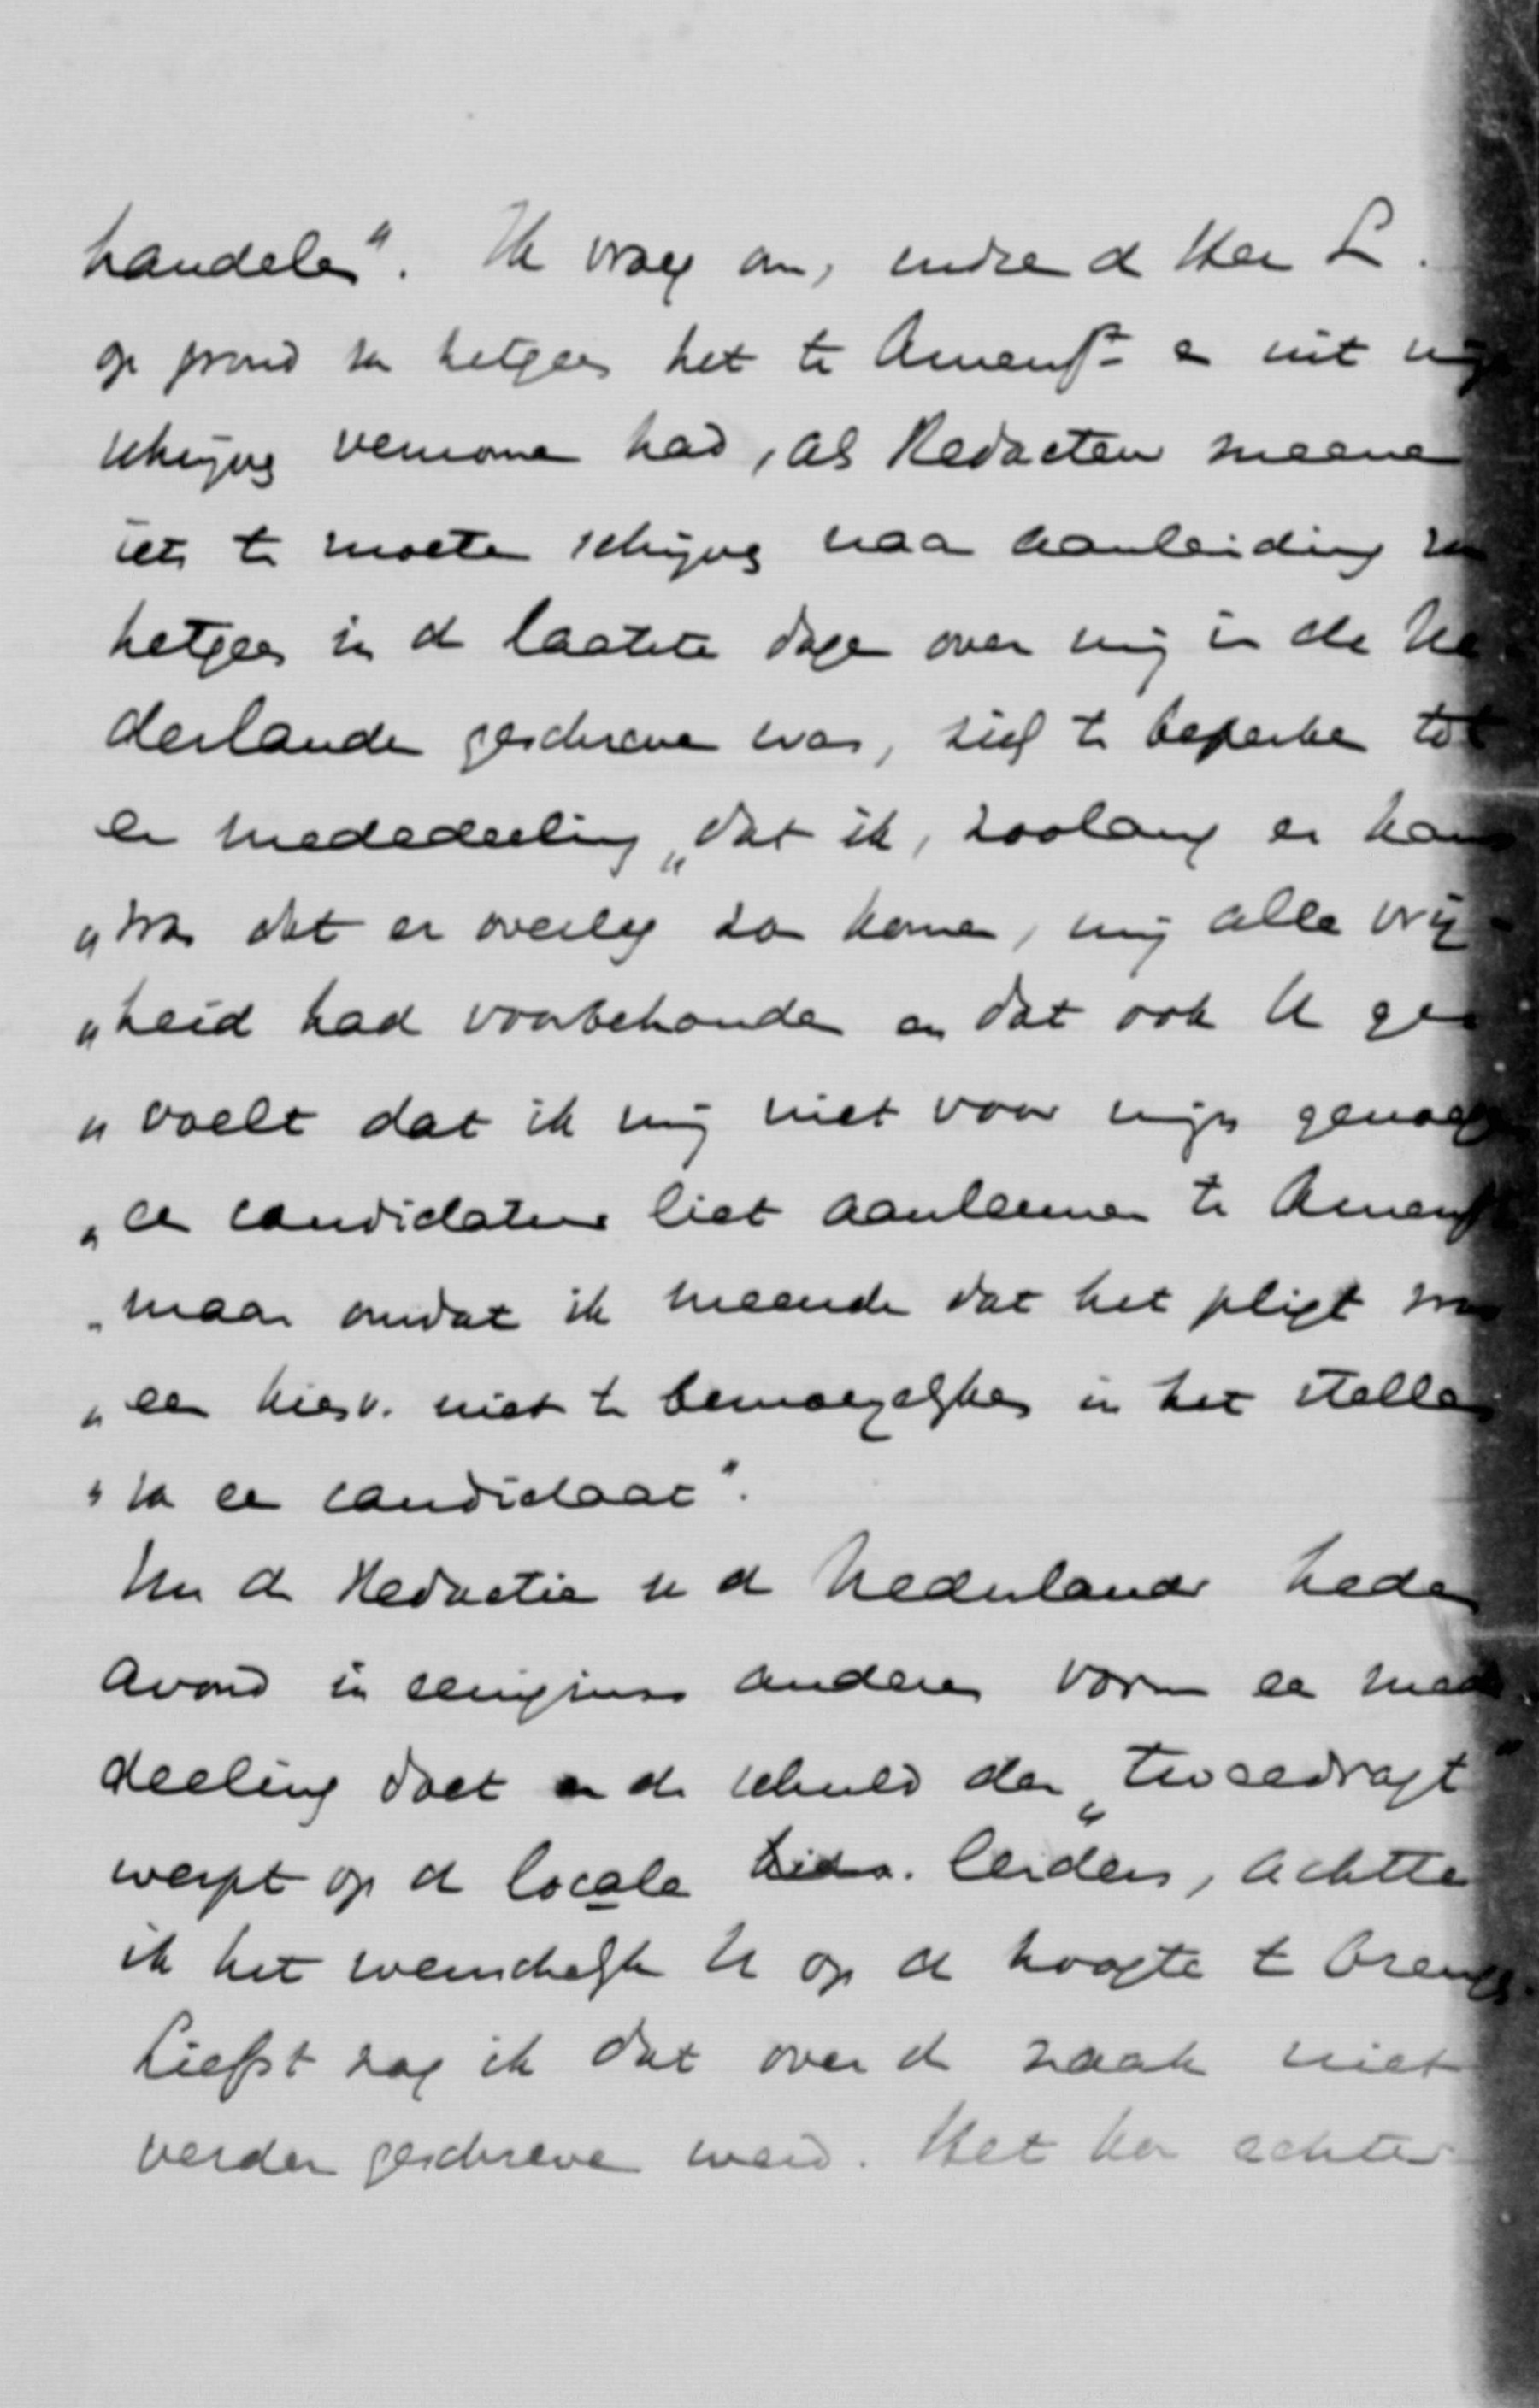 handelen". Ik vroeg om, indien de Heer L.
op grond van hetgeen het te Amersft en uit mijn
schrijven vernomen had, als Redacteur meenen
iets te moeten schrijven naar aanleiding van
hetgeen in de laatste dagen over mij in de Ne
derlander geschreven was, zich te beperken tot
een mededeeling „dat ik, zoolang er kans
„was dat er overleg zou komen, mij alle vrij-
„heid had voorbehouden en dat ook U ge
„voelt dat ik mij niet voor mijn genoegen
„een candidatuur liet aanleunen te Amersft
„maar omdat ik meende dat het pligt was
„een kiesv. niet te bemoeyelijken in het stellen
„van een candidaat".
Nu de Redactie v d Nederlander heden
avond in eenigzins anderen vorm een mede
deeling doet en de schuld der „tweedragt"
werpt op de locale leiders, achtte
ik het wenschelijk U op de hoogte te brengen.
Liefst zag ik dat over de zaak niet
verder geschreven werd. Het kan echter